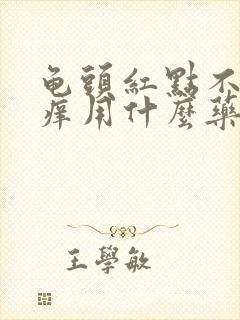 龟頭紅點不
痒用什麼藥
王學敏